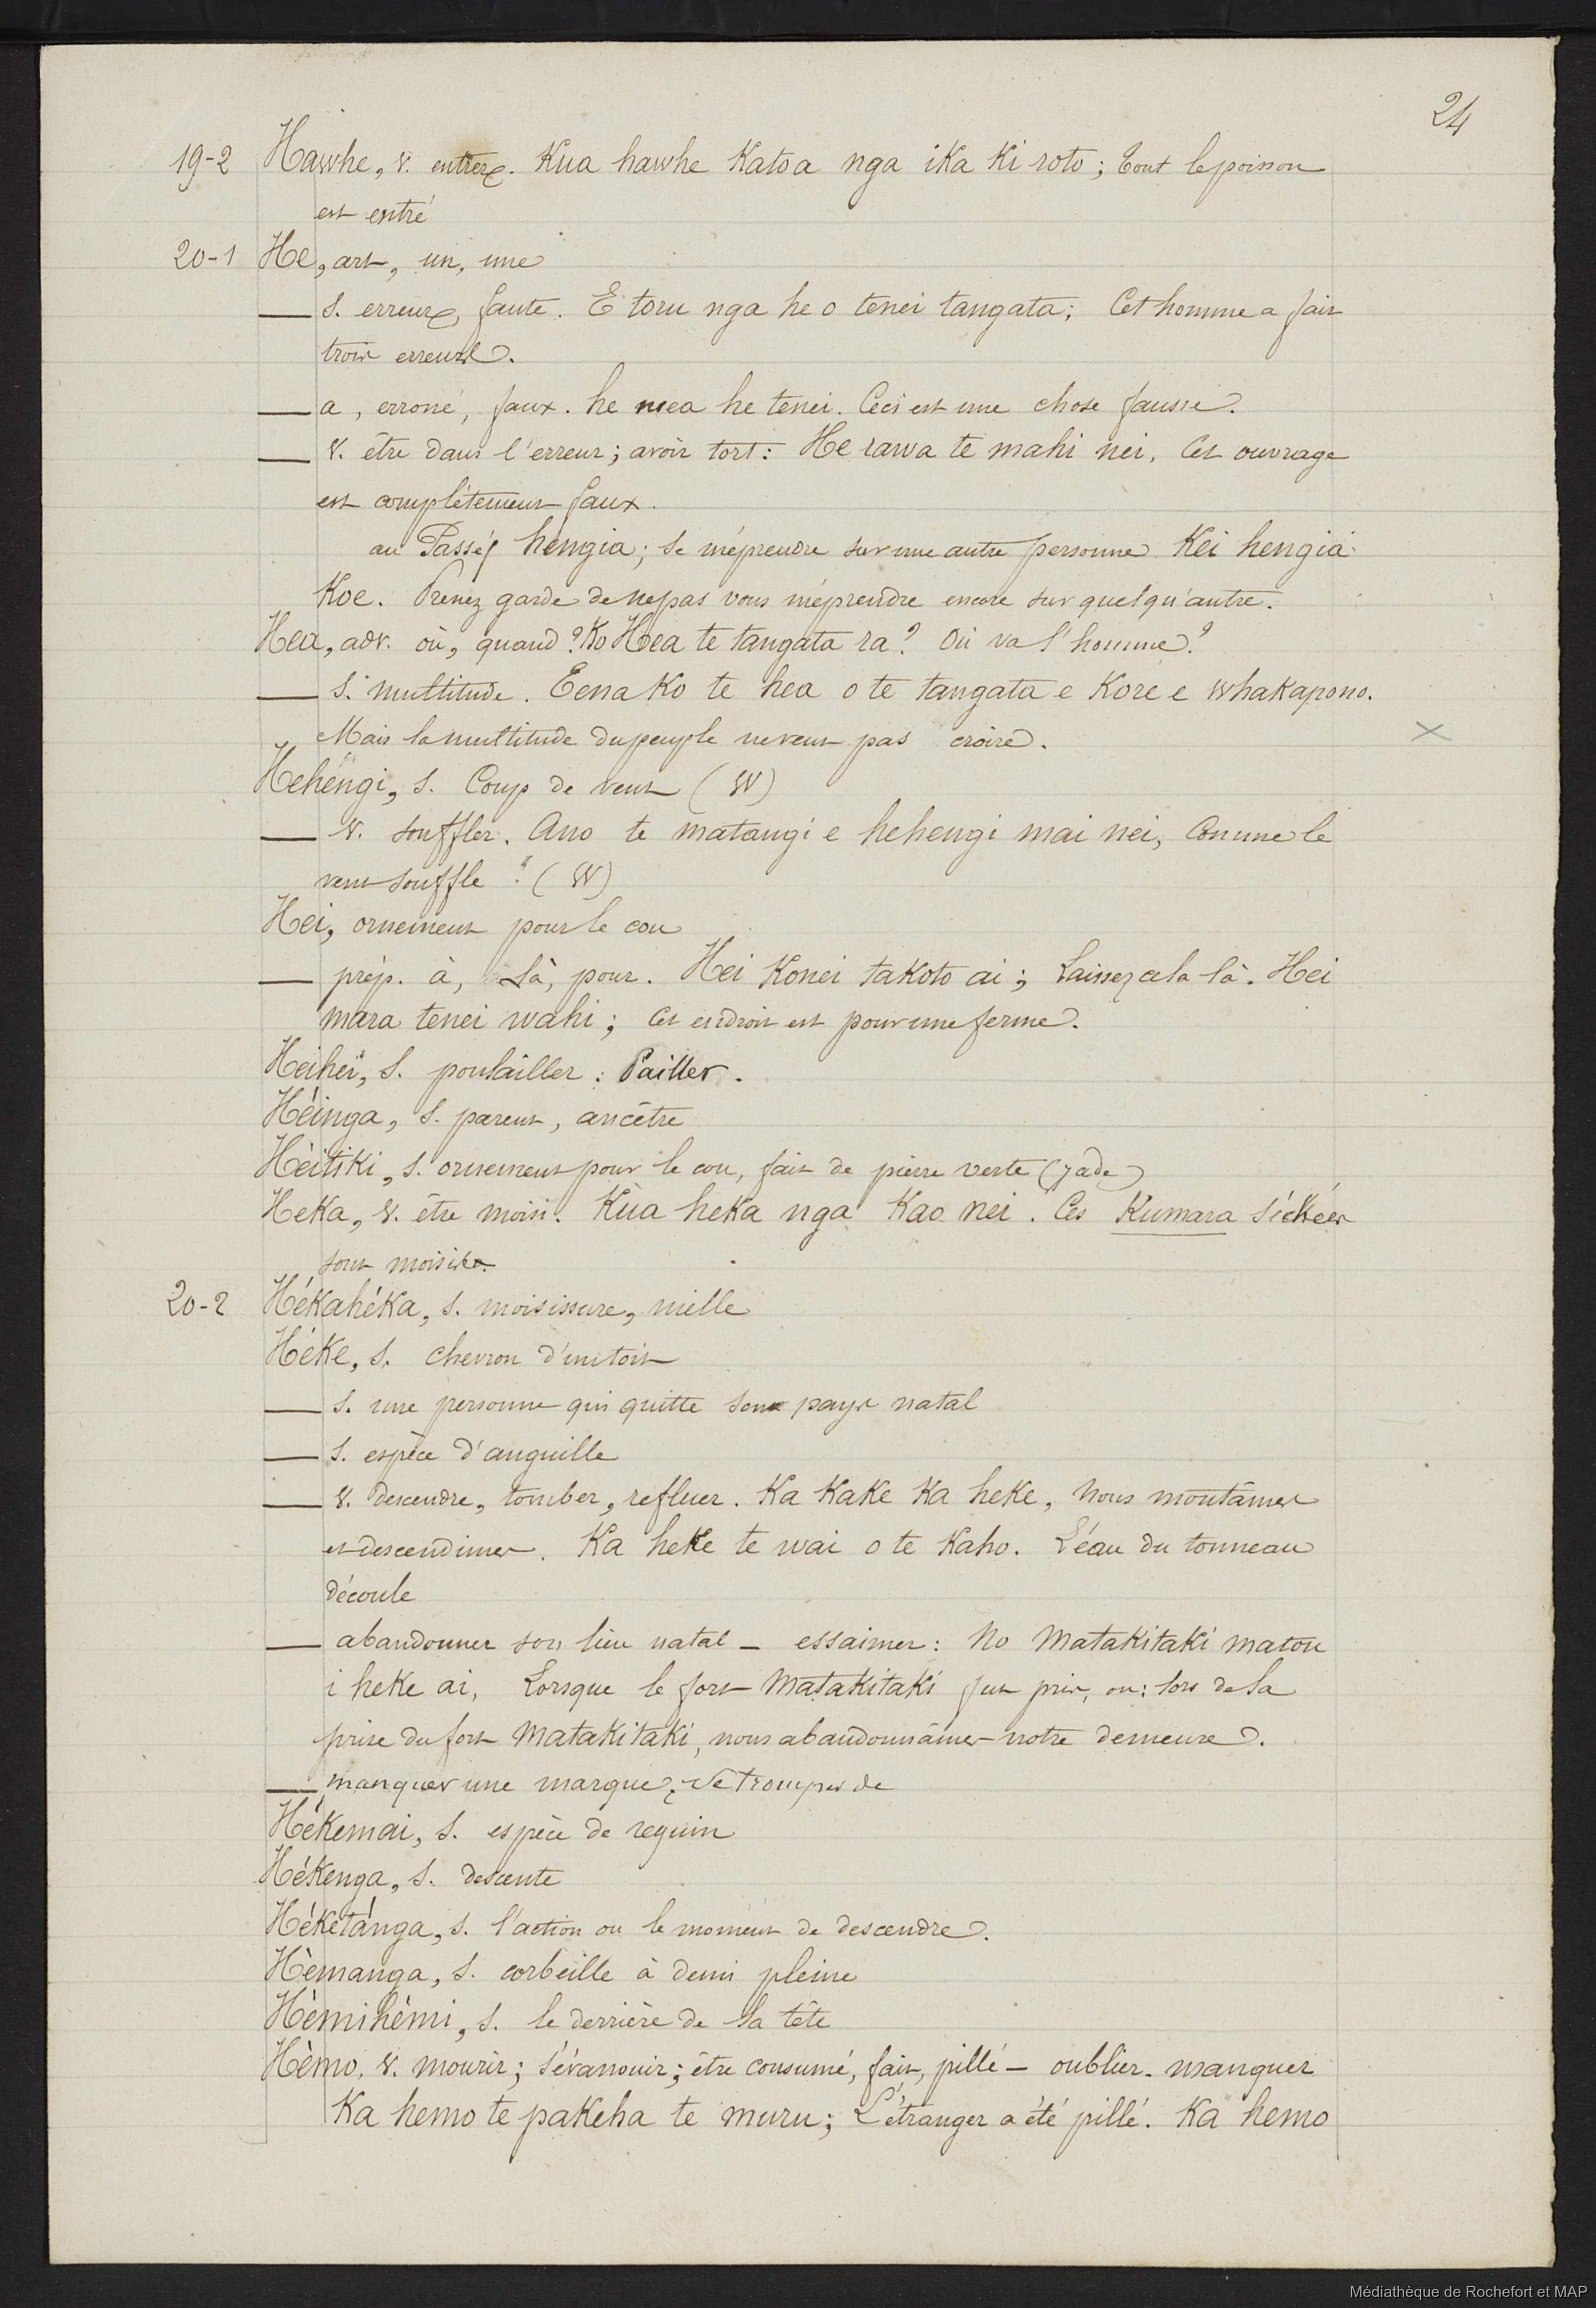 24
19-2 Hawhe, v. entrer. Kua hawhe Katoa nga ika Ki roto; Tout le poisson
est entré
20-1 He, art, un, une
— s. erreur, faute. E toru nga he o tenei tangata; Cet homme a fait
trois erreurs.
— a, erroné, faux. he mea he tenei. Ceci est une chose fausse.
— v. être dans l'erreur; avoir tort: He rawa te mahi nei, Cet ouvrage
est complétement faux.
au Passé hengia; se méprendre sur une autre personne Kei hengia
Koe. Prenez garde de ne pas vous méprendre encore sur quelqu'autre.
Hea, adv. où, quand? Ko Hea te tangata ra? Où va l'homme?
— s. multitude. Eena Ko te hea o te tangata e Kore e whakapono.
Mais la multitude du peuple ne veut pas croire.
Hehengi, s. Coup de vent (W)
— v. souffler. Ano te matangi e hehengi mai nei, Comme le
vent souffle. (W)
Hei, ornement pour le cou
— prép. à, là, pour. Hei Konei takoto ai; Laissez cela là. Hei
mara tenei wahi; Cet endroit est pour une ferme.
Heihei, s. poulailler: Pailler.
Héinga, s. parent, ancêtre
Hèitiki, s. ornement pour le cou, fait de pierre verte (jade)
Heka, v. être moisi. Kùa heka nga Kao nei. Ces Kumara séchées
sont moisis
20-2 Hékahéka, s. moisissure, nielle
Héke, s. chevron d'un toit
— s. une personne qui quitte son pays natal
— s. espèce d'anguille
— v. descendre, tomber, refluer. Ka Kake Ka heke, Nous montâmes
et descendimes. Ka heke te wai o te Kaho. L'éau du tonneau
découle
— abandonner son lieu natal — essaimer: No Matakitaki matou
i heke ai, Lorsque le fort Matakitaki fut pris, ou: lors de la
prise du fort Matakitaki, nous abandonnâmes notre demeure.
— manquer une marque, se tromper de
Hékemai, s. espèce de requin
Hékenga, s. descente
Héketánga, s. l'action ou le moment de descendre.
Hèmanga, s. corbeille à demi pleine
Hèmihèmi, s. le derrière de la tête
Hèmo, v. mourir; s'évanouir; être consumé, fait, pillé — oublier. manquer
Ka hemo te pakeha te muru; L'étranger a été pillé. Ka hemo
Médiathèque de Rochefort et MAP